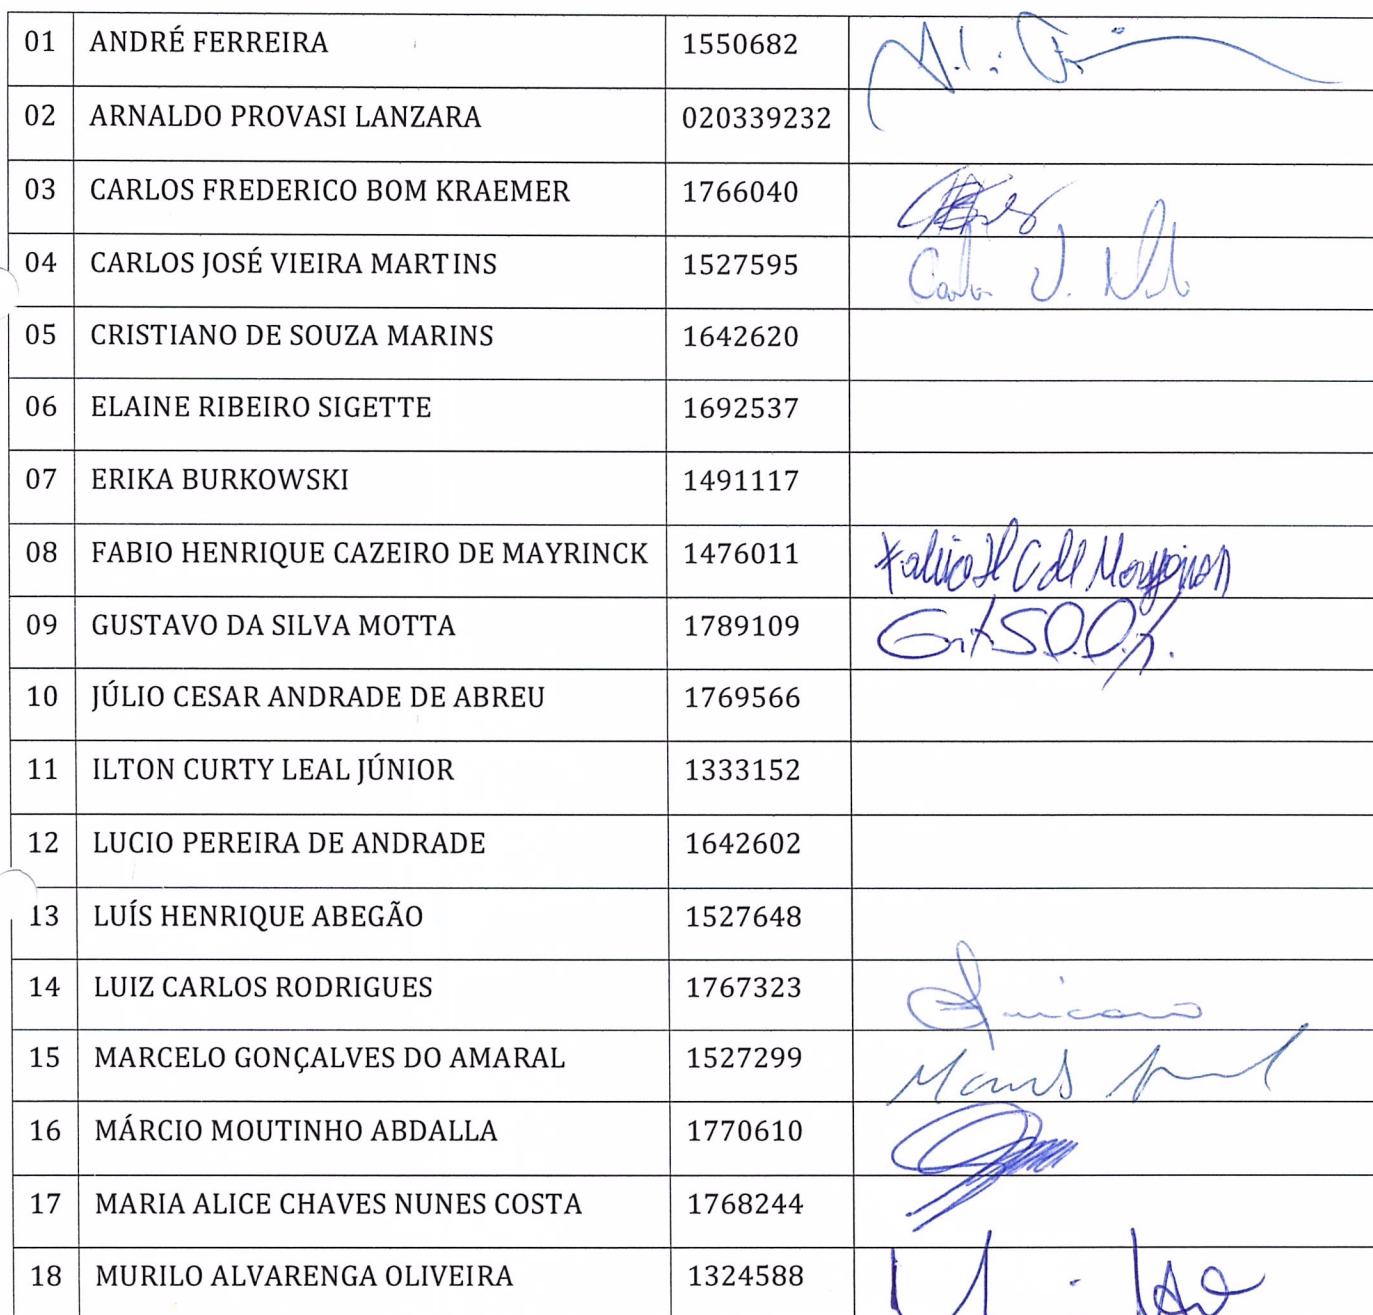 01 ANDRÉ FERREIRA 1550682
02 ARNALDO PROVASI LANZARA 020339232
03 CARLOS FREDERICO BOM KRAEMER 1766040
04 CARLOS JOSÉ VIEIRA MARTINS 1527595
05 CRISTIANO DE SOUZA MARINS 1642620
06 ELAINE RIBEIRO SIGETTE 1692537
07 ERIKA BURKOWSKI 1491117
08 FABIO HENRIQUE CAZEIRO DE MAYRINCK 1476011
09 GUSTAVO DA SILVA MOTTA 1789109
10 JÚLIO CESAR ANDRADE DE ABREU 1769566
11 ILTON CURTY LEAL JÚNIOR 1333152
12 LUCIO PEREIRA DE ANDRADE 1642602
13 LUÍS HENRIQUE ABEGÃO 1527648
14 LUIZ CARLOS RODRIGUES 1767323
15 MARCELO GONÇALVES DO AMARAL 1527299
16 MÁRCIO MOUTINHO ABDALLA 1770610
17 MARIA ALICE CHAVES NUNES COSTA 1768244
18 MURILO ALVARENGA OLIVEIRA 1324588